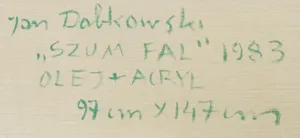 Jan Dobkowski
„SZUM FAL" 1983
OLEJ + ACRYL
97 cm X 147 cm